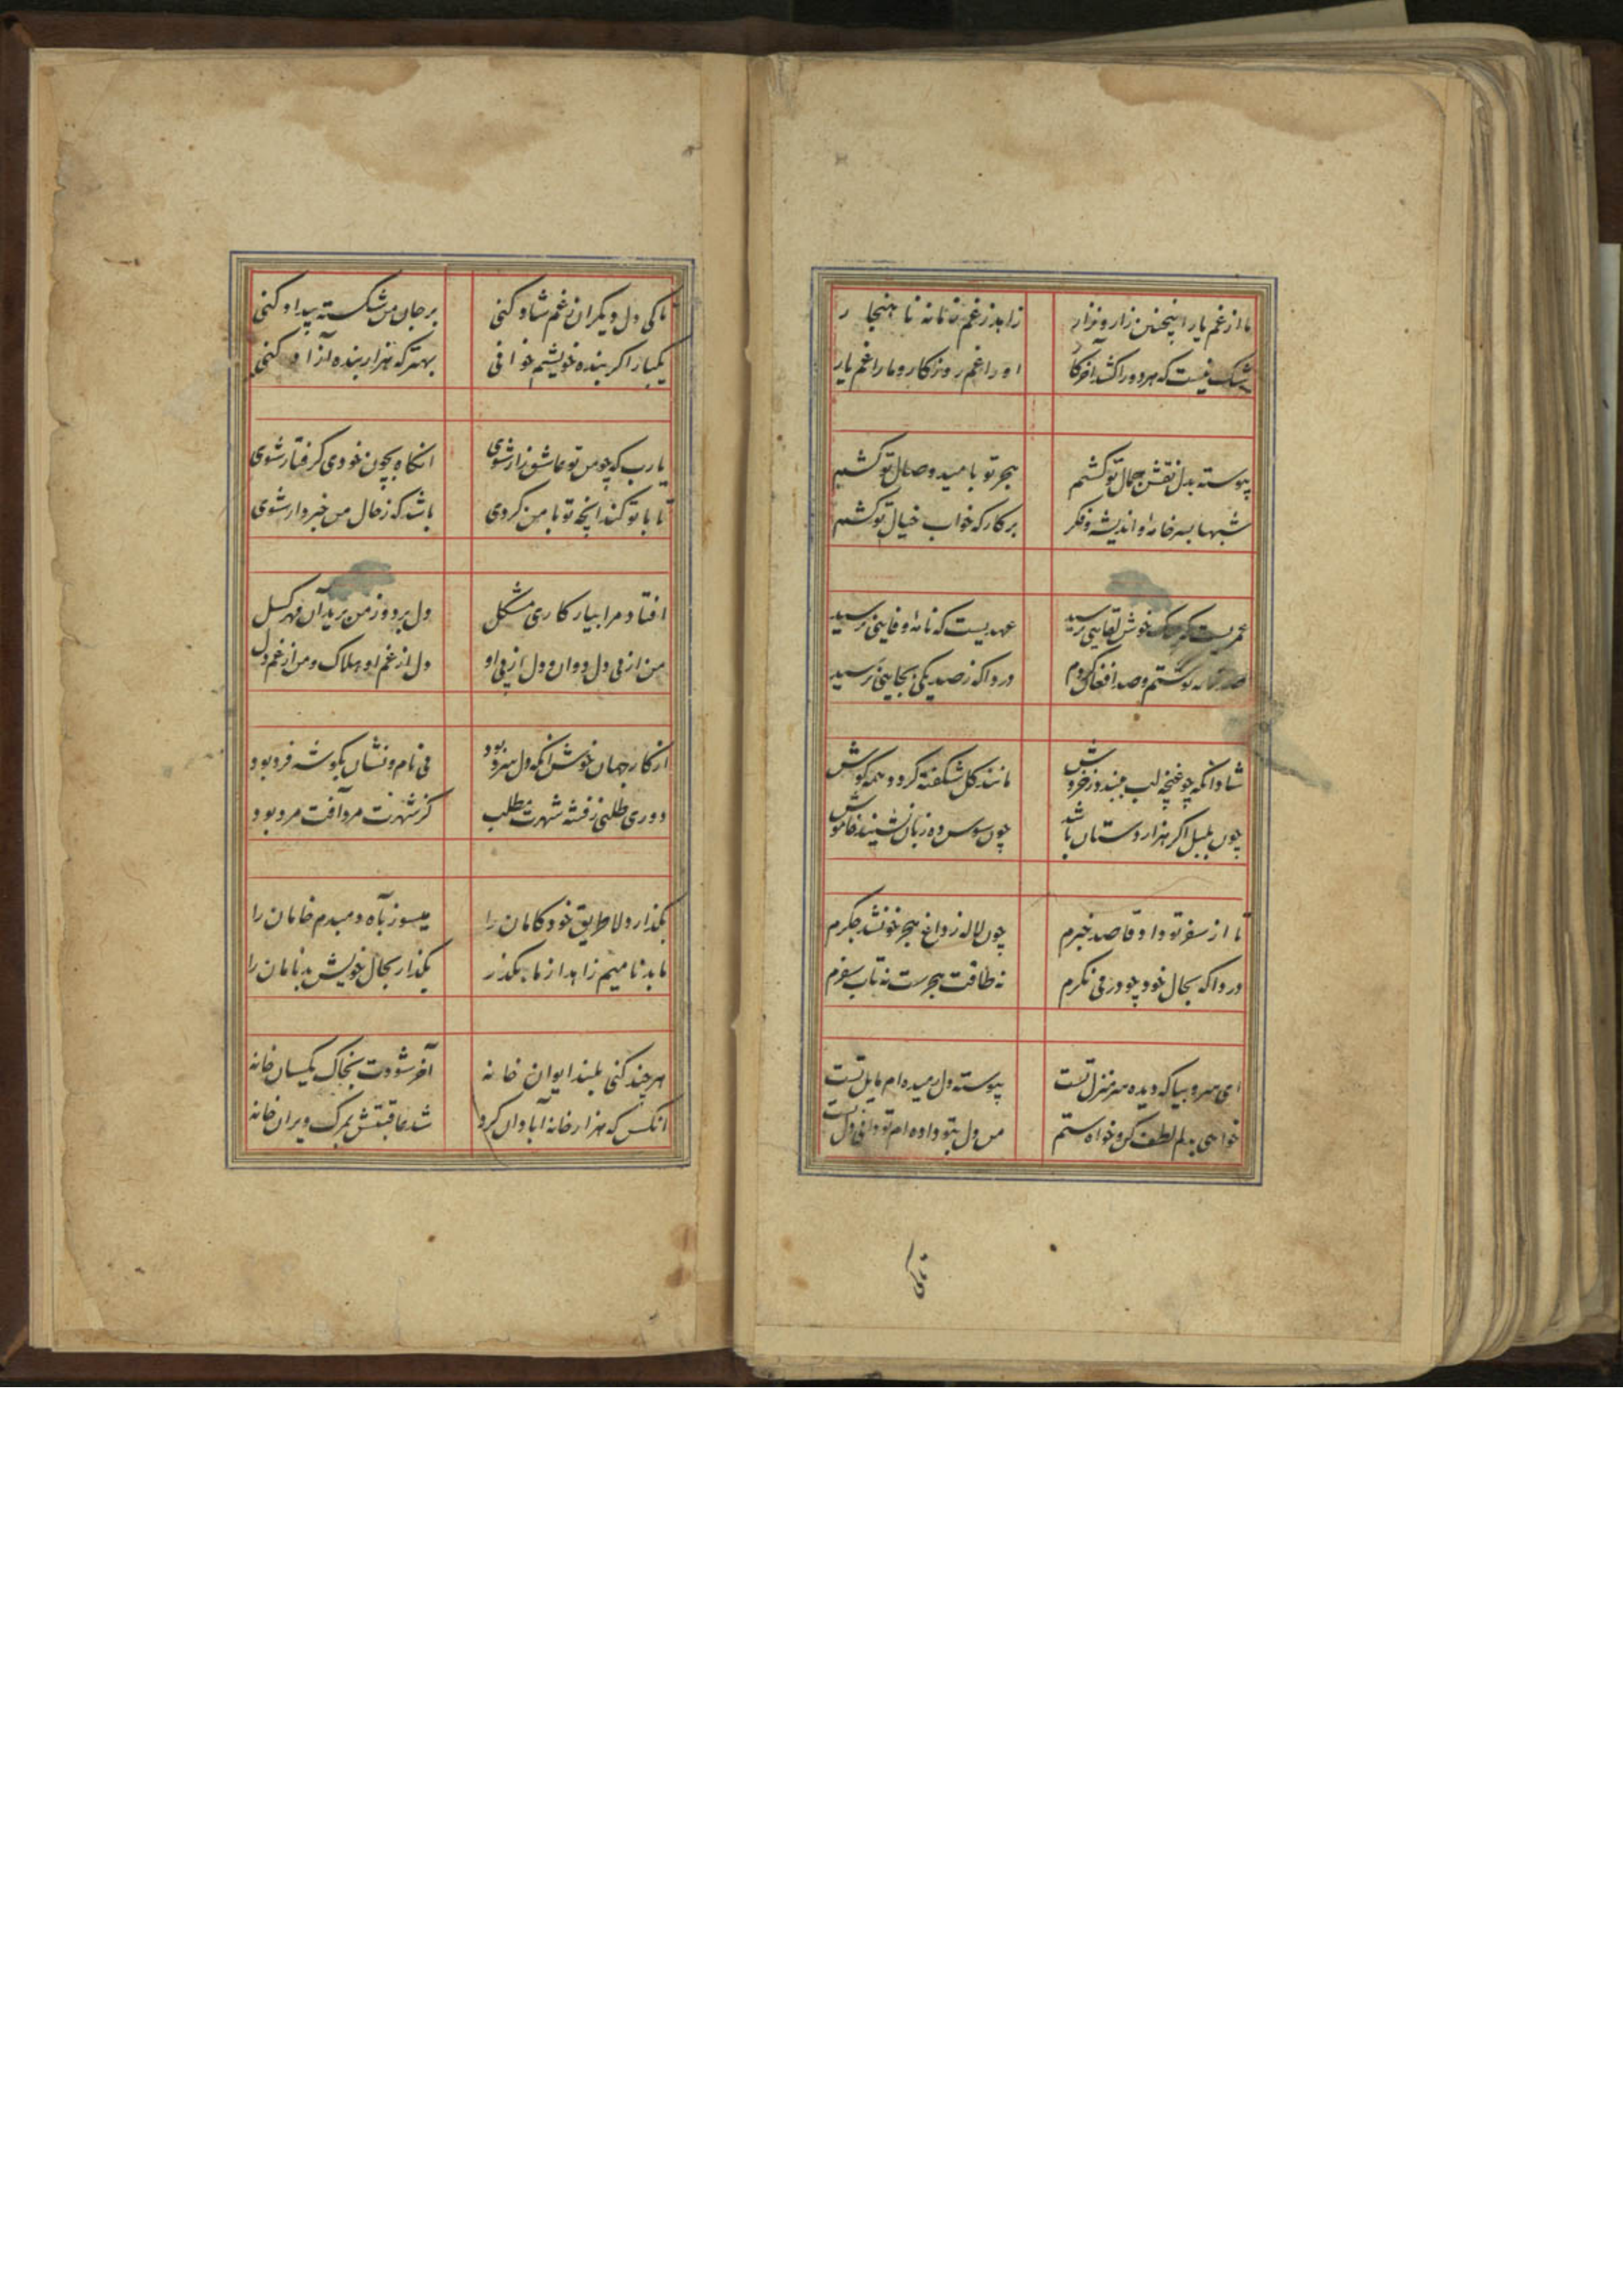 ما از غم یار اینچنین زار و نزار
زاهد ز غم زمانه ناهنجار
شک نیست که هر دو را کشد آخر کار
او را غم روزکار و ما را غم یار
پیوسته بدل نقش جمال تو کشم
هجر تو بامید وصال تو کشم
شبها بسر خامه اندیشه و فکر
برکارکه خواب خیال تو کشم
عمریست که خوش لقایی نرسید
عهدیست که نامه وفایی نرسید
صد نامه نوشتم و صد افغان کردم
دردا که ز صد یکی بجایی نرسید
شاد آنکه چو غنچه لب ببندد ز خروش
مانند کل شکفته کردد همه کوش
چون بلبل اکر هزار دستان باشد
چون سوسن ده زبان نشیند خاموش
تا از سفر تو داد قاصد خبرم
چون لاله ز داغ هجر خونشد جکرم
دردا که بحال خود چو در می نکرم
نه طاقت هجرست نه تاب سفرم
ای سرو بیا که دیده سرمنزل تست
پیوسته دل رمیده ام مایل تست
خواهی بدلم لطف کن و خواه ستم
من دل بتو داده ام تو دانی دل تست
تا کی
تا کی دل دیکران ز غم شاد کنی
بر جان من شکسته بیداد کنی
یکبار اکر بنده خویشم خوانی
بهتر که هزار بنده آزاد کنی
یارب که چو من تو عاشق زار شوی
انکاه بچون خودی کرفتار شوی
تا با تو کند انچه تو با من کردی
باشد که ز حال من خبردار شوی
افتاد مرا بیار کاری مشکل
دل برد و ز من برید آن مهرکسل
من از پی دل دوان و دل از پی او
دل از غم او هلاک و من از غم دل
از کار جهان خوش انکه دل سرد بود
بی نام و نشان بکوشه فرد بود
دوری طلبی ز فتنه شهرت مطلب
کز شهرت مرد آفت مرد بود
بکذار دلا طریق خودکامان را
میسوز بآه دمبدم خامان را
ما بدنامیم زاهد از ما بکذر
بکذار بحال خویش بدنامان را
هر چند کنی بلند ایوان خانه
آخر شودت بخاک یکسان خانه
انکس که هزار خانه آبادان کرد
شد عاقبتش بمرک ویران خانه